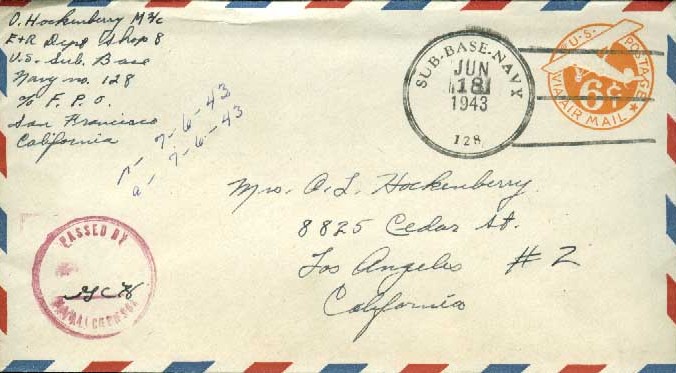 O. Hockenberry M 2/c
E+R Dept Shop 8
U.S. Sub. Base
Navy no. 128
℅ F. P. O.
San Francisco
California
r- 7-6-43
a- 7-6-43
SUB-BASE-NAVY
JUN
18
1943
128
U.S. POSTAGE
6¢
VIA AIR MAIL
Mrs. O. L. Hockenberry
8825 Cedar St.
Los Angeles #2
California
PASSED BY
NAVAL CENSOR